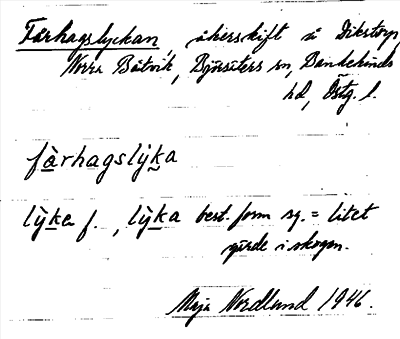 Fårhagslyckan, åkerskift i Dikstorp,
Norra Båtvik, Björsäters sn, Bankekinds
hd, Östg. l.
fà̱rhagslỳḵa
lỳḵa f., lỳḵa best. form sg. = litet
gärde i skogen.
Maja Nordlund 1946.